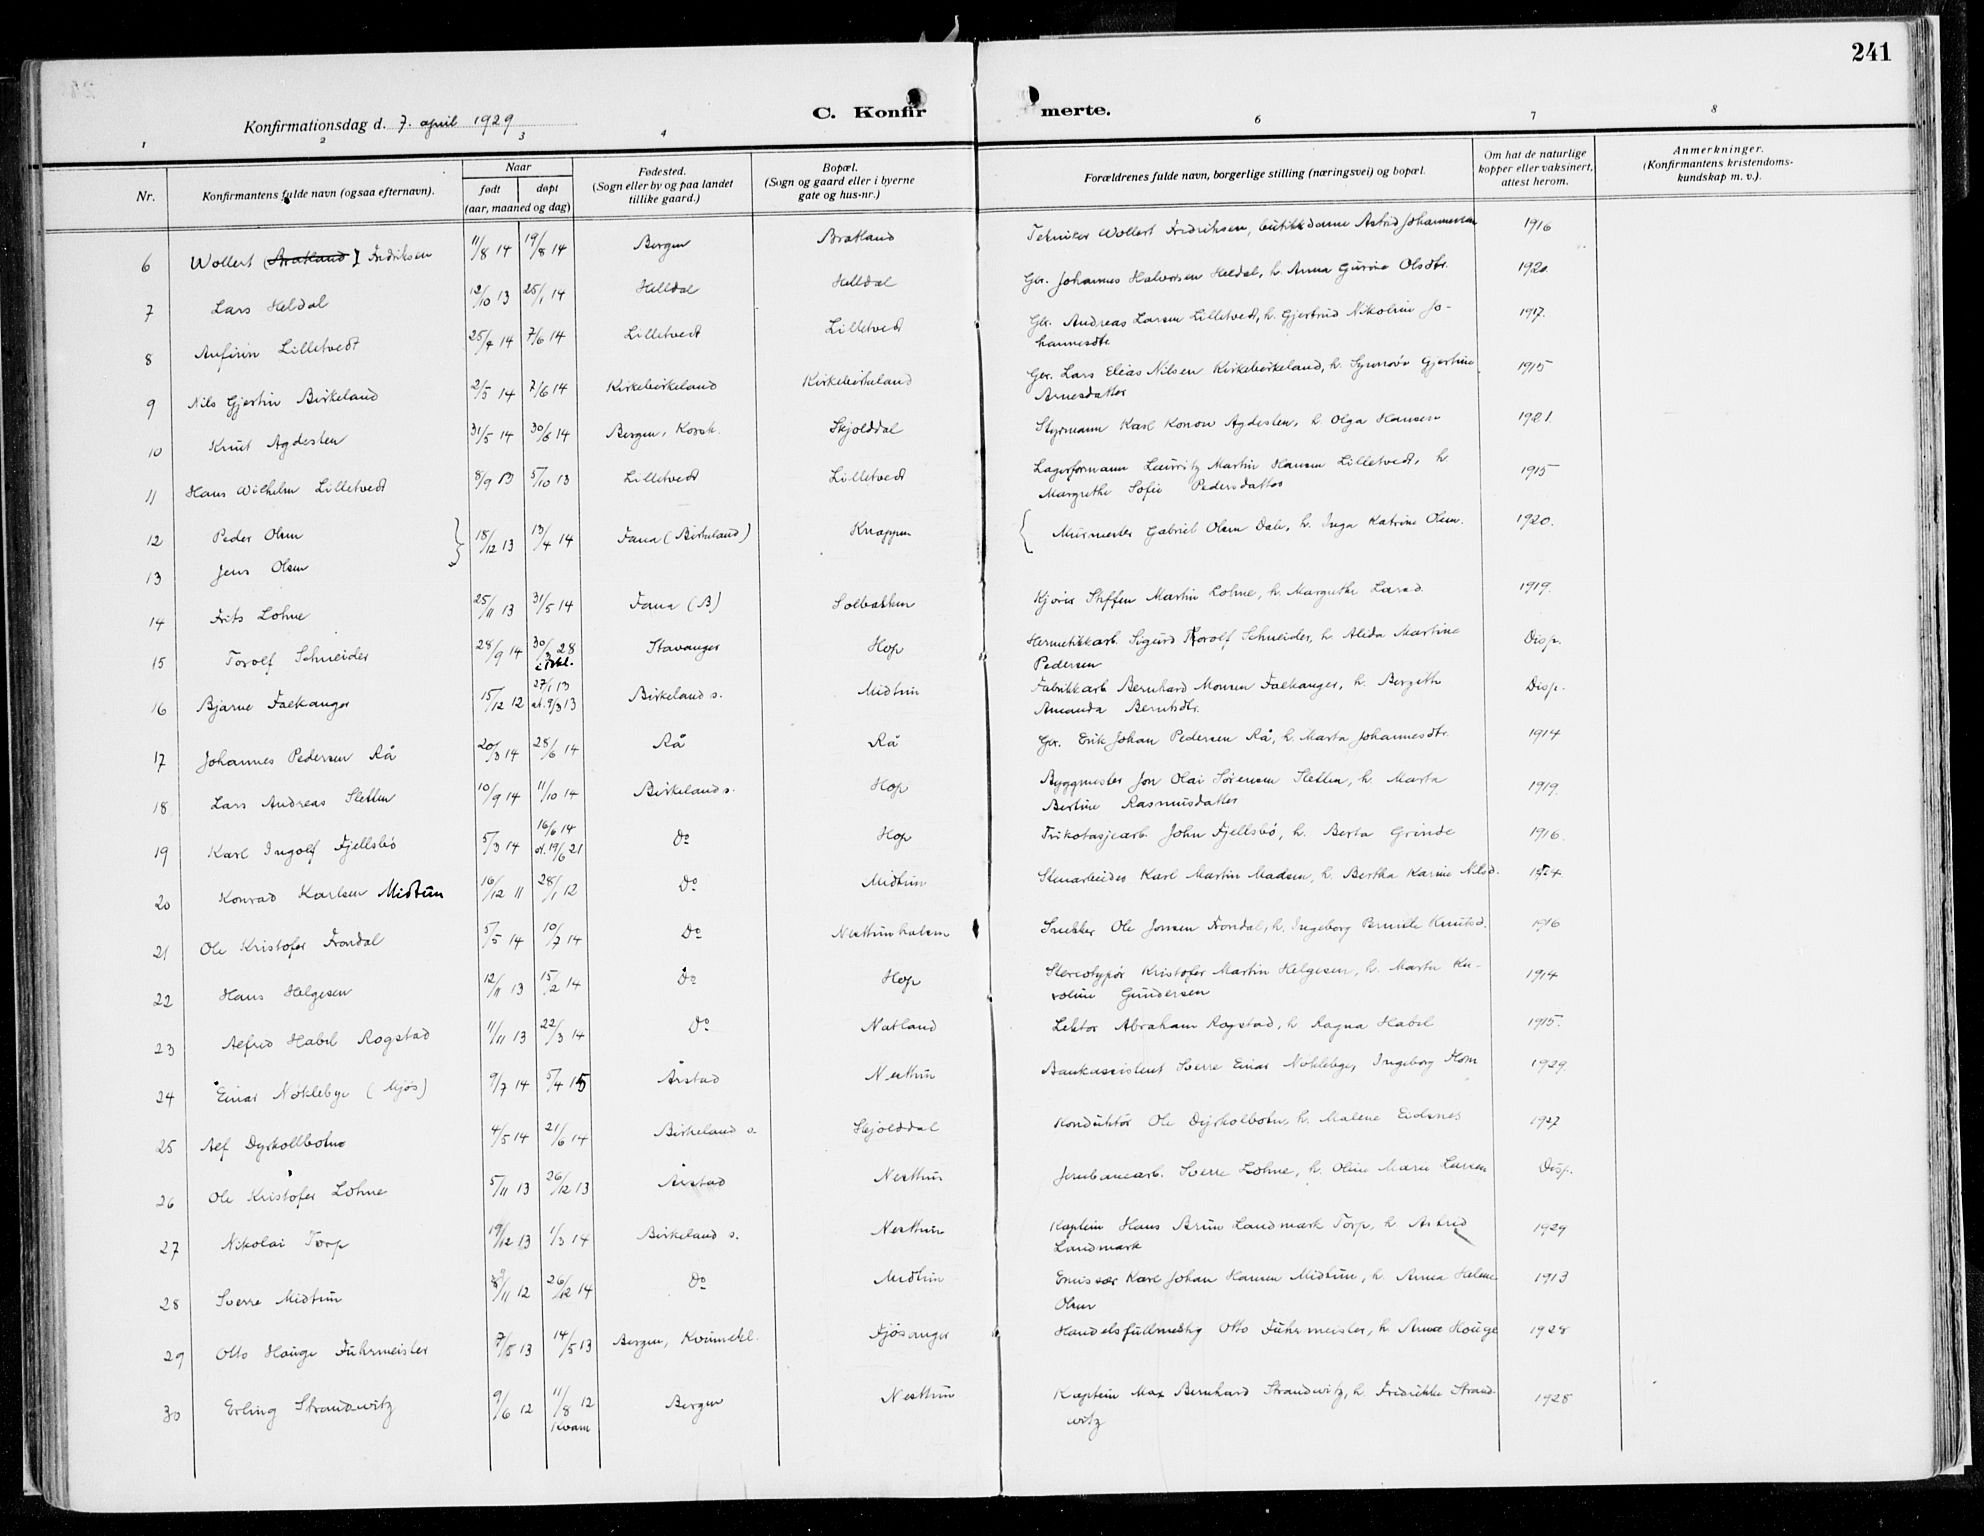 241
C. Konfirmerte.
Konfirmationsdag d. 7. april 1929
1 2 3 4 6 7 8
Nr. Konfirmantens fulde navn (ogsaa efternavn). Naar født døpt (aar, maaned og dag) Fødested. (Sogn eller by og paa landet tillike gaard.) Bopæl. (Sogn og gaard eller i byerne gate og hus-nr.) Forældrenes fulde navn, borgerlige stilling (næringsvei) og bopæl. Om hat de naturlige kopper eller vaksinert, attest herom. Anmerkninger. (Konfirmantens kristendoms-kundskap m. v.).
6 Wollert (Bratland) Fredriksen 11/8 14 19/8 14 Bergen Bratland Tekniker Wollert Fredriksen, butikkdame Astrid Johannessen 1916
7 Lars Heldal 12/10 13 25/1 14 Helldal Helldal Gbr. Johannes Halvorsen Heldal, h. Anna Gurine Olsdtr. 1920.
8 Anfinn Lilletvedt 25/4 14 7/6 14 Lilletvedt Lilletvedt Gbr. Andreas Larsen Lilletvedt, h. Gjertrud Nikoline Jo-
hannesdtr. 1917.
9 Nils Gjertin Birkeland 2/5 14 7/6 14 Kirkebirkeland Kirkebirkeland Gbr. Lars Elias Nilsen Kirkebirkeland, h. Synnøv Gjertine
Arnesdatter 1915
10 Knut Agdesten 31/5 14 30/8 14 Bergen, Korsk. Skjolddal Styrmann Karl Konow Agdesten, h. Olga Hansen 1921.
11 Hans Wilhelm Lilletvedt 8/9 13 5/10 13 Lilletvedt Lilletvedt Lagerformann Lauritz Martin Hansen Lilletvedt, h.
Margrethe Sofie Pedersdatter 1915
12 Peder Olsen } 18/12 13 13/4 14 Fana (Birkeland) Knappen { Murmester Gabriel Olsen Dale, h. Inga Katrine Olsen. 1920.
13 Jens Olsen
14 Frits Lohne 25/11 13 31/5 14 Fana (B) Solbakken Kjører Steffen Martin Lohne, h. Margrethe Larsd. 1919.
15 Torolf Schneider 28/9 14 30/9 28 Stavanger Hop Hermetikkarb. Sigurd Torolf Schneider, h. Alida Martine
Pedersen Disp.
16 Bjarne Falkanger 15/12 12 27/1 13 st. 9/3 13 Birkeland s. Midttun Fabrikkarb. Bernhard Monsen Falkanger, h. Bergith
Amanda Berntsdtr. Disp.
17 Johannes Pedersen Rå 20/3 14 28/6 14 Rå Rå Gbr. Erik Johan Pedersen Rå, h. Marta Johannesdtr. 1914
18 Lars Andreas Sletten 10/9 14 11/10 14 Birkeland s. Hop Byggmester Jon Olai Sørensen Sletten, h. Marta
Bertine Rasmusdatter 1919.
19 Karl Ingolf Fjellsbø 5/3 14 16/6 14 st. 19/6 21 Do Hop Trikotasjearb. John Fjellsbø, h. Berta Grinde 1916.
20 Konrad Karlsen Midttun 16/12 11 28/1 12 Do Midttun Stenarbeider Karl Martin Madsen, h. Bertha Karine Nilsd.
21 Ole Kristofer Frondal 5/5 14 10/7 14 Do Nesttunhalsen Snekker Ole Jonsen Frondal, h. Ingeborg Knutsd. 1916
22 Hans Helgesen 12/11 13 15/2 14 Do Hop Stereotypør Kristofer Martin Helgesen, h. Marta Ka-
roline Gundersen 1914
23 Alfred Habil Rogstad 11/11 13 22/3 14 Do Natland Lektor Abraham Rogstad, h. Ragna Habil 1915.
24 Einar Nøklebye (Mjøs) 9/7 14 5/4 15 Årstad Nesttun Bankassistent Sverre Einar Nøklebye, Ingeborg 1929
25 Alf Dyrkollbotn 4/5 14 21/6 14 Birkeland s. Skjolddal Konduktør Ole Dyrkolbotn, h. Malene Eidsnes 1927
26 Ole Kristofer Lohne 5/11 13 26/12 13 Årstad Nesttun Jernbanearb. Sverre Lohne, h. Oline Marie Larsen Disp.
27 Nikolai Torp 19/12 13 1/3 14 Birkeland s. Nesttun Kaptein Hans Brun Landmark Torp, h. Astrid
Landmark 1929
28 Sverre Midttun 8/11 12 26/12 14 Do Midttun Emissær Karl Johan Hansen Midttun, h. Anna Helene
Olsen 1913
29 Otto Hauge Fuhrmeister 7/5 13 14/5 13 Bergen, Fjøsanger Handelsfullmektig Otto Fuhrmeister, h. Anna Hauge 1928
30 Erling Strandwitz 9/6 12 11/8 12 Kvam Bergen Nesttun Kaptein Max Bernhard Strandwitz, h. Fredrikke Strand-
witz 1928